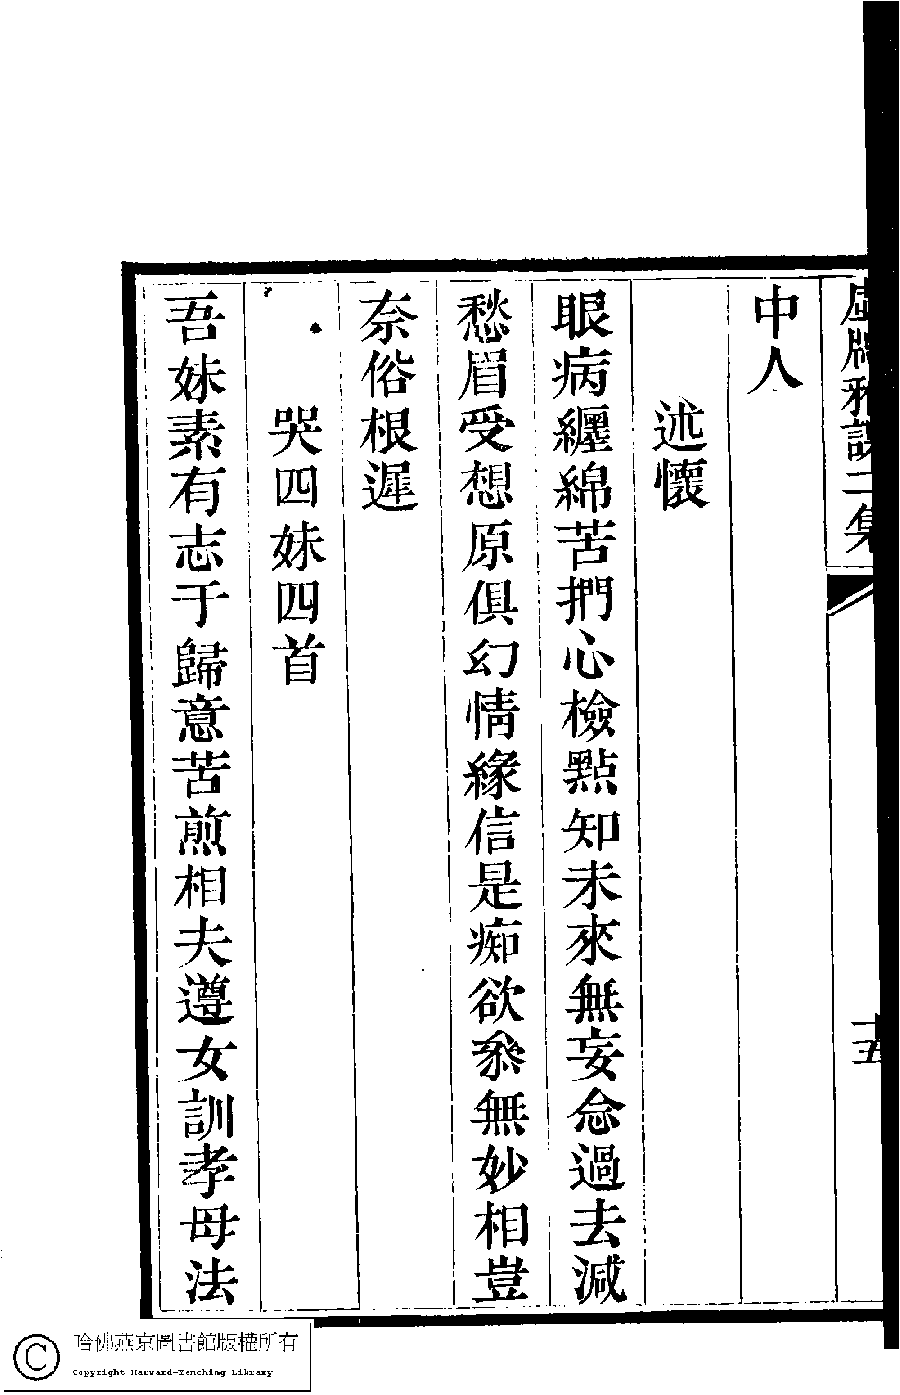 虛牕雅課二集
十五
中人
述懷
眼病纏綿苦捫心檢點知未來無妄念過去減
愁眉受想原俱幻情緣信是痴欲叅無妙相豈
奈俗根遲
哭四妹四首
吾妹素有志于歸意苦煎相夫遵女訓孝母法
哈佛燕京圖書館版權所有
Copyright Harvard-Yenching Library